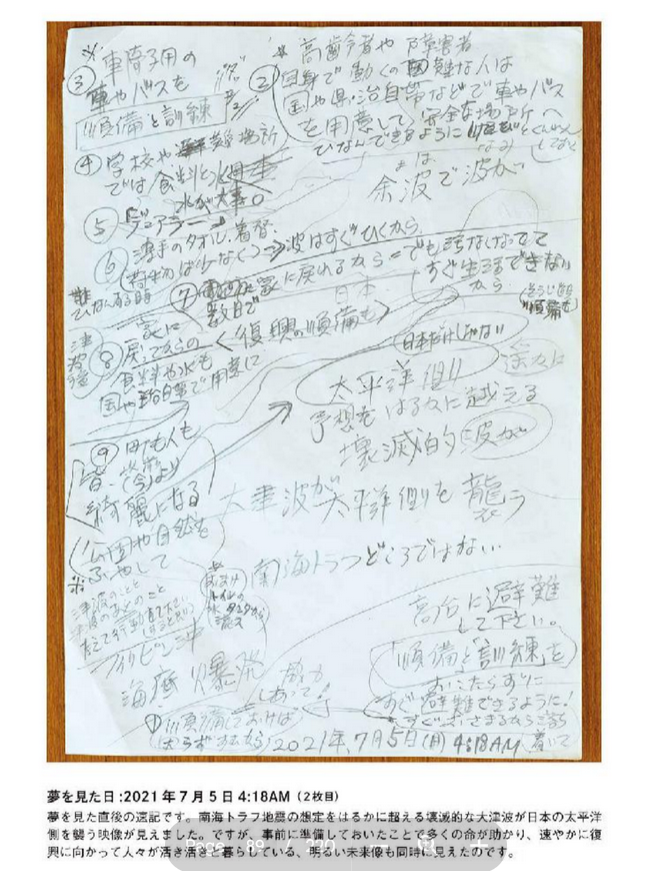 ※車椅子用の
③車やバスを
順備と訓練
※高齢者や障害者
②自身で動くの困難な人は
国や県、治自帯などで車やバス
を用意して安全な場所へ
ひなんできるように
④学校や避難場所
では食料と水
水が大事。
余波で波が
⑤
薄手のタオル、着替
⑥荷物は少なく
⇒波はすぐひくから
⑦
数日で
家に戻れるから=でも
すぐ生活できない
から
日本
そうじ
順備も
<復興の順備も>
津波後
⑧家に
戻ってからの
食料や水も
国や
で用意して
日本だけじゃない
太平洋側!!
予想をはるかに越える
壊滅的な波が
⑨町も人も
皆
今より
綺麗になる
公園や自然を
ふやして
大津波が太平洋側を襲う
南海トラフどころではない...
※おまけ
トイレの
水タンクから
※
津波のこと
高台に避難
して下さい。
「順備と訓練」を
おこたらずに
すぐ避難できるように!
フィリピン沖
海底爆発
協力
しあって!
①順備しておけば
2021年7月5日(月)4:18AM
夢を見た日:2021年7月5日4:18AM(2枚目)
夢を見た直後の速記です。南海トラフ地震の想定をはるかに超える壊滅的な大津波が日本の太平洋
側を襲う映像が見えました。ですが、事前に準備しておいたことで多くの命が助かり、速やかに復
興に向かって人々が活き活きと暮らしている、明るい未来像も同時に見えたのです。
Page 89 / 270